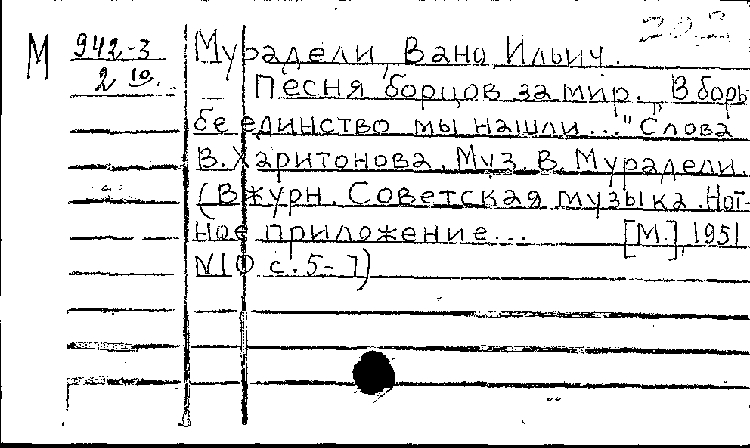 М 942-3 Мурадели, Вано Ильич.
2 10. Песня борцов за мир. "В борь-
бе единство мы нашли..." Слова
В. Харитонова. Муз. В. Мурадели.
(В журн. Советская музыка. Нот-
ное приложение... [М.], 1951
N10 с. 5-7)